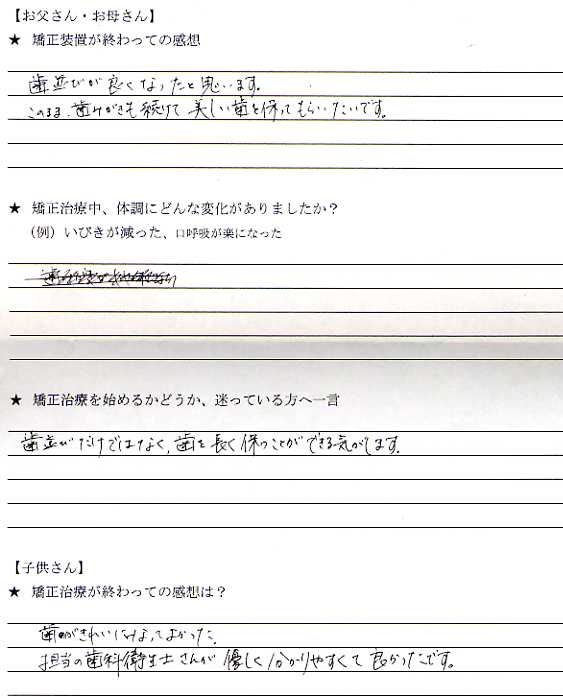 【お父さん・お母さん】
★ 矯正装置が終わっての感想
歯並びが良くなったと思います。
このまま、歯みがきも続けて美しい歯を保ってもらいたいです。
★ 矯正治療中、体調にどんな変化がありましたか？
（例）いびきが減った、口呼吸が楽になった
★ 矯正治療を始めるかどうか、迷っている方へ一言
歯並びだけではなく、歯を長く保つことができる気がします。
【子供さん】
★ 矯正治療が終わっての感想は？
歯がきれいになってよかった。
担当の歯科衛生士さんが優しく分かりやすくて良かったです。